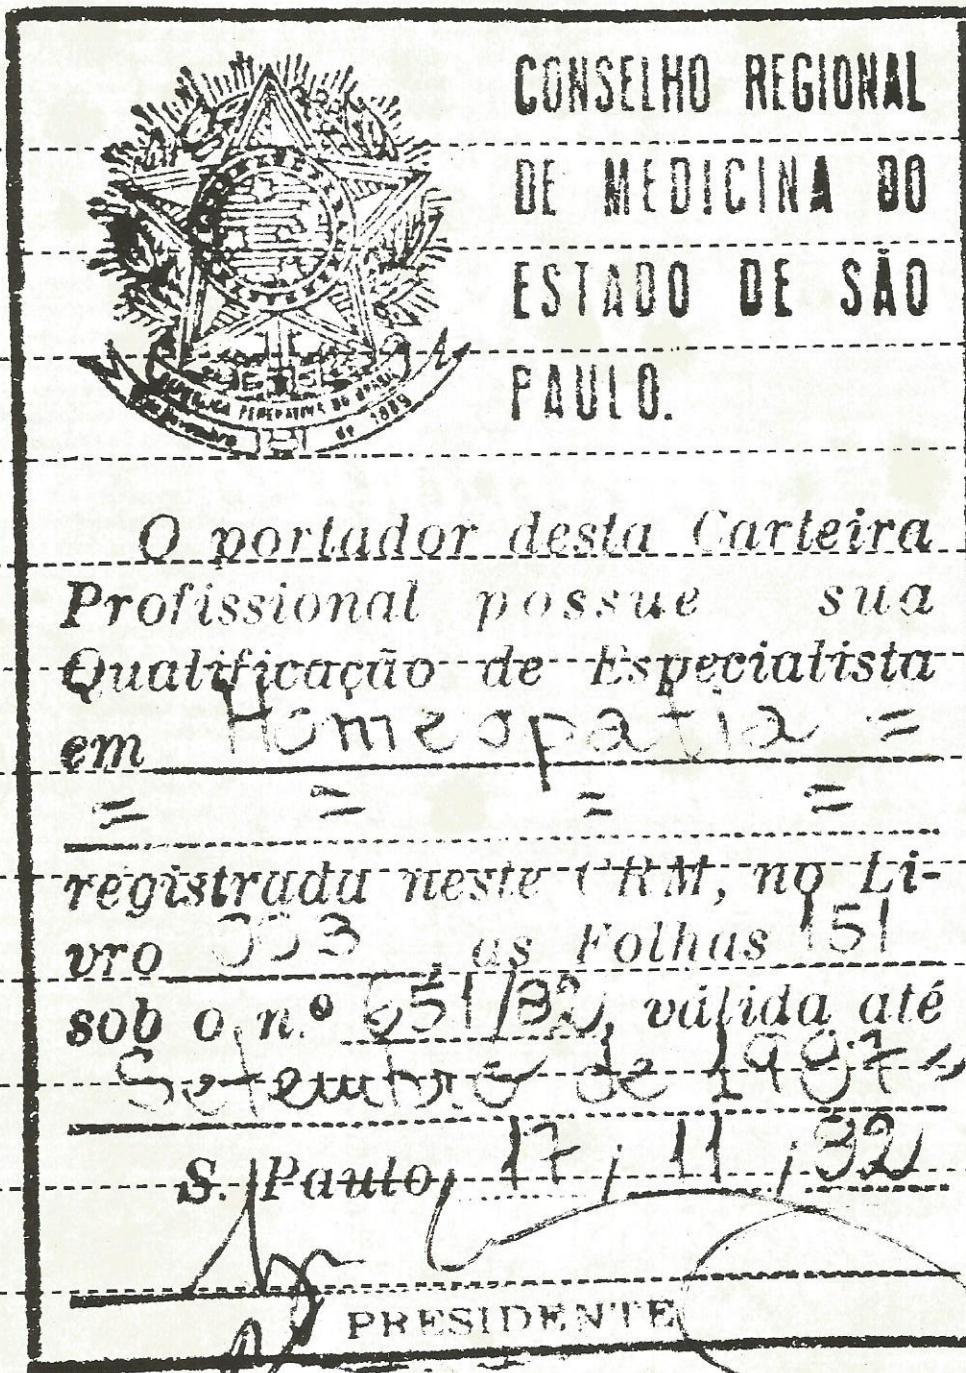 CONSELHO REGIONAL
DE MEDICINA DO
ESTADO DE SÃO
PAULO.
REPÚBLICA FEDERATIVA DO BRASIL
de 1889
O portador desta Carteira
Profissional possue sua
Qualificação de Especialista
em Homeopatia =
= = = =
registrada neste CRM, no Li-
vro 003, as Folhas 151
sob o n.º 651/82, válida até
Setembro de 1987
S. Paulo, 17 / 11 / 82
PRESIDENTE